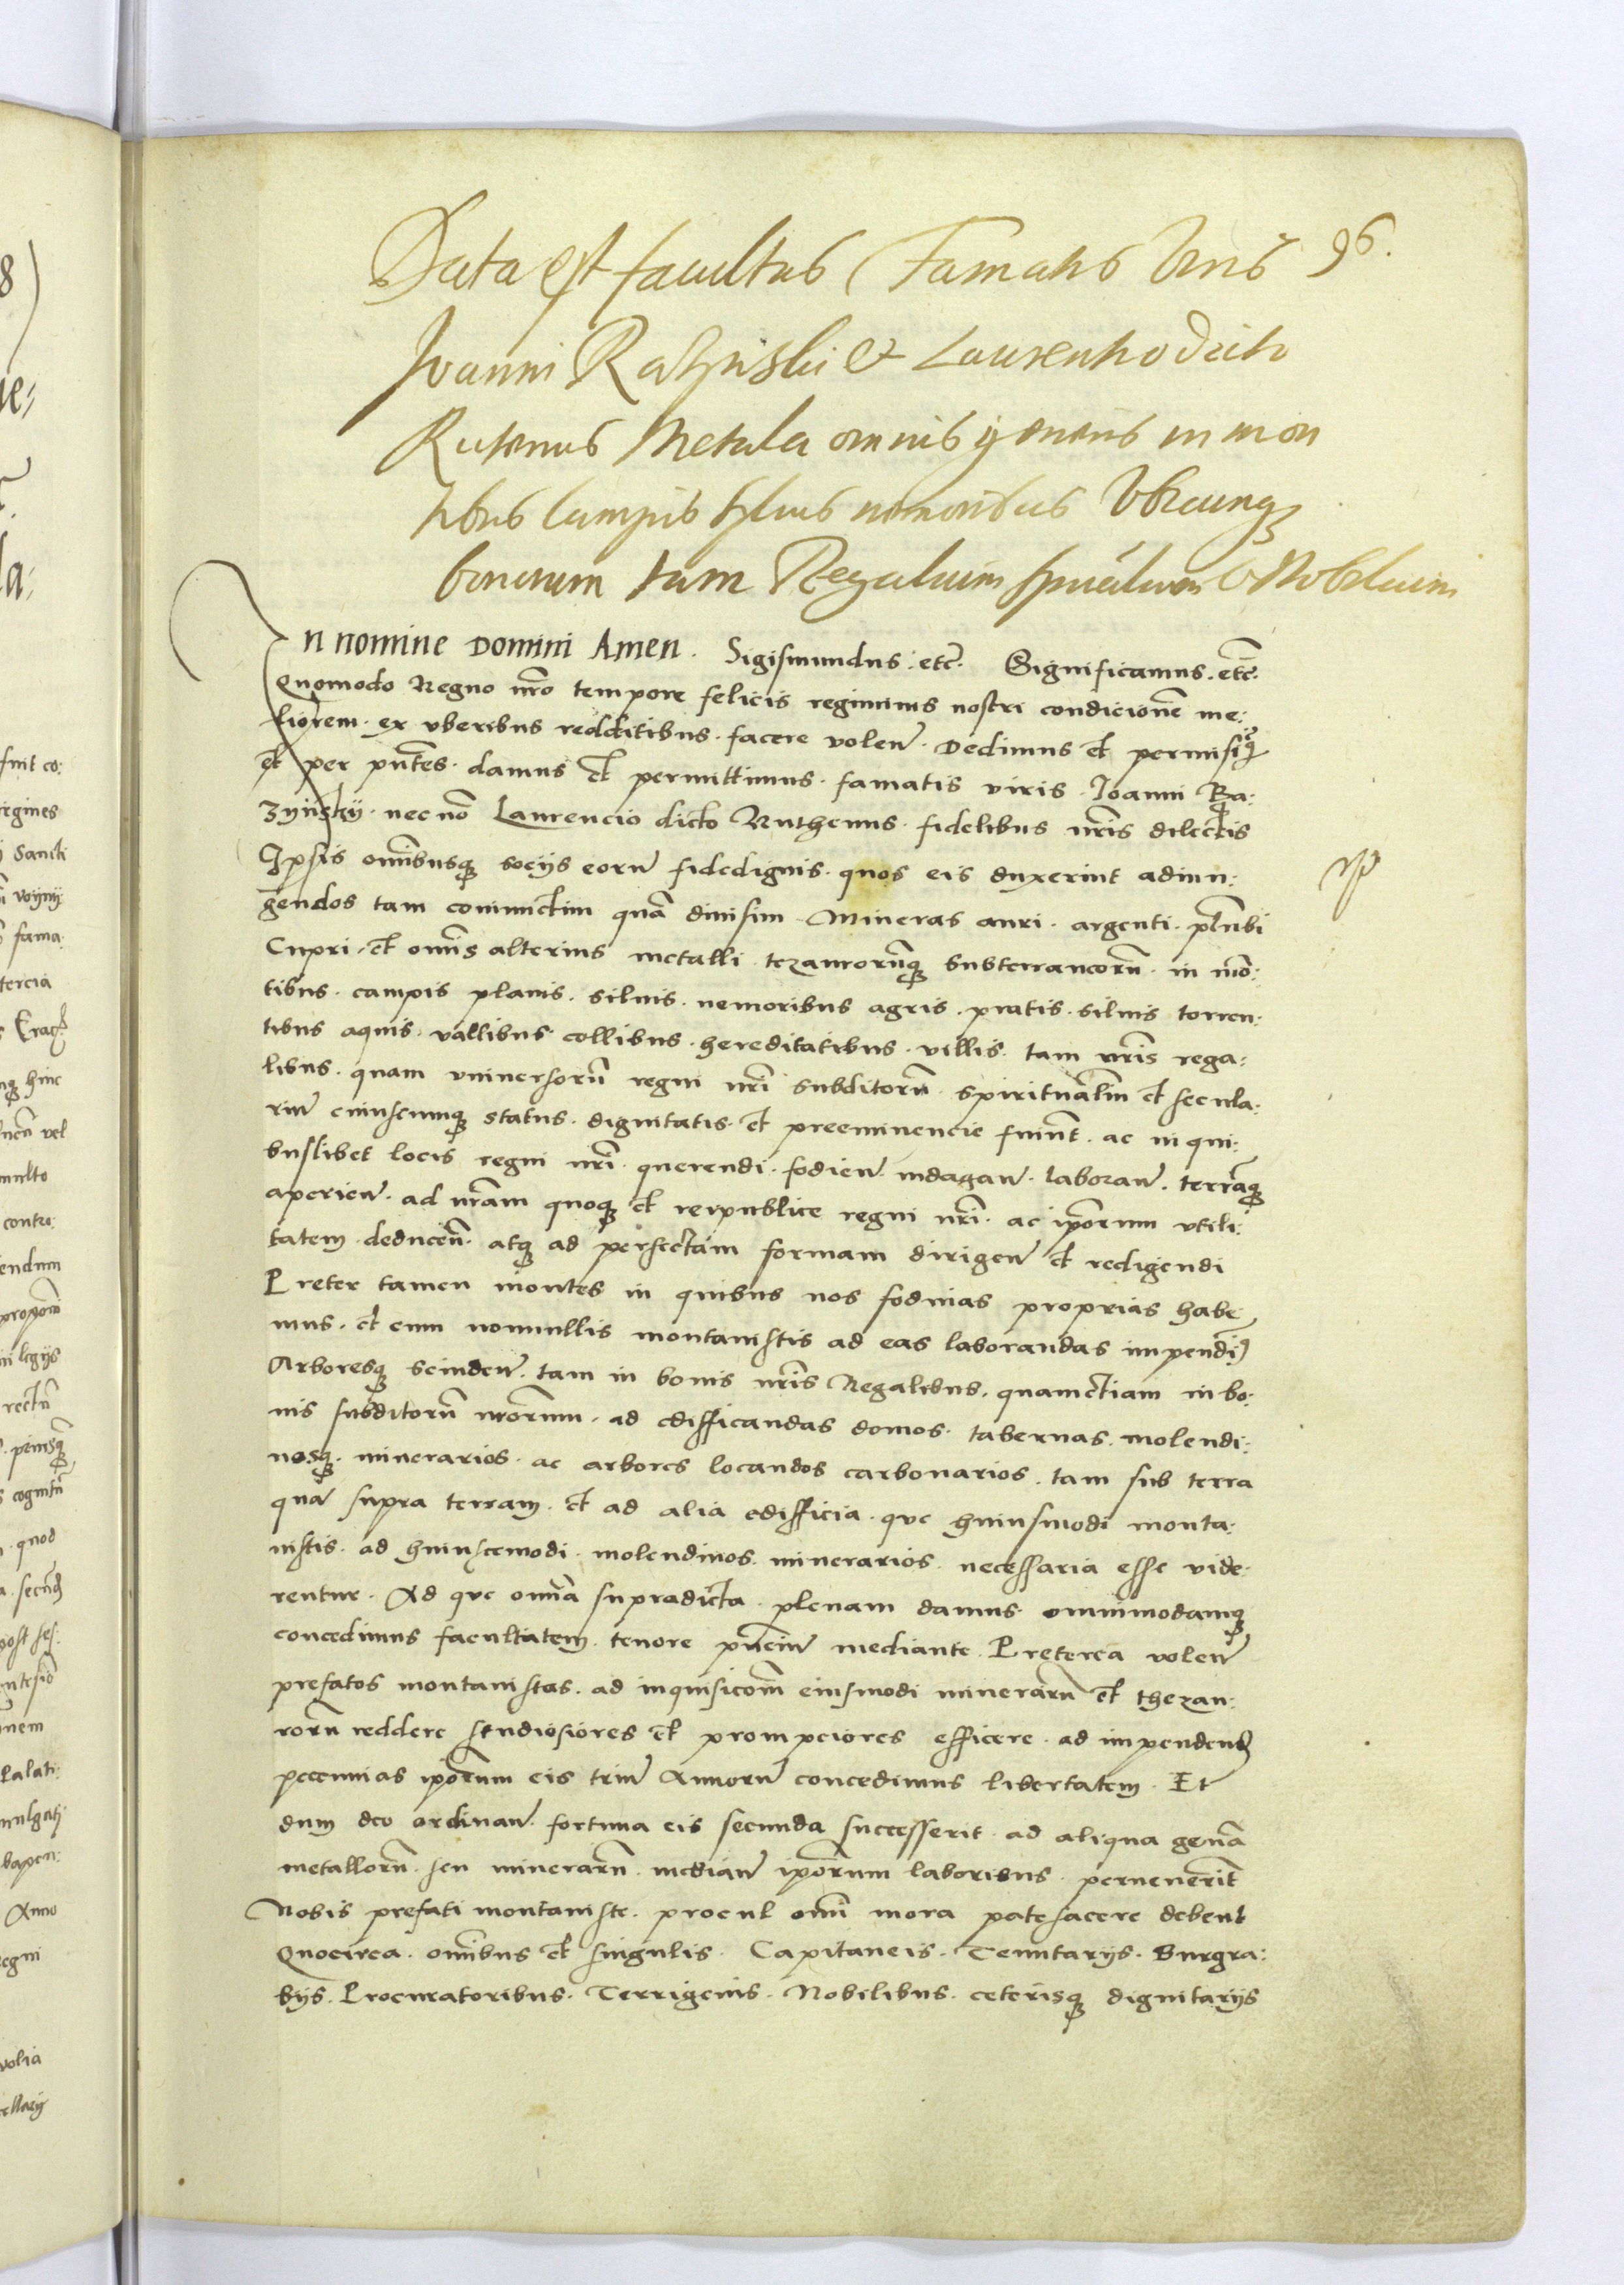 96.
Data est facultas Famatis Viris
Ioanni Raszinski et Laurentio dicto
Rutenus Metala omnis generis in mon
tibus campis syluis nemoribus Vbicunqꝫ
bonorum tam Regalium spũalium et Nobilium
In nomine Domini Amen. Sigismundus. etc̃. Significamus. etc̃.
Quomodo Regno nr̃o tempore felicis regiminis nostri condicionẽ me:
liorem. ex vberibus redditibus. facere volen̄. Dedimus et permisiꝫ
et per pn̄tes. damus et permittimus. famatis viris. Joanni Ra:
zynsky. nec nõ Laurencio dicto Ruthenus. fidelibus nr̃is dilectis
Ipsis om̄ibusqꝫ socijs eorũ fidedignis. quos eis duxerint adiun:
gendos tam coniunctim quã diuisim. Mineras auri. argenti. plũbi
Cupri. et om̄is alterius metalli tezaurorũqꝫ subterraneorũ. in mõ:
tibus. campis planis. siluis. nemoribus agris. pratis. siluis torren:
tibus aquis. vallibus collibus. hereditatibus. villis. tam nr̃is rega:
libus. quam vniuersorũ regni nr̃i subditorũ. spiritualiũ et secula:
riũ cuiuscumqꝫ status. dignitatis. et preeminencie fuint. ac in qui:
buslibet locis regni nr̃i. querendi. fodien̄. indagan̄. laboran̄. terrãqꝫ
aperien̄. ad nr̃am quoqꝫ et reipublice regni nr̃i. ac ip̄orum vtili:
tatem deducen̄. atqꝫ ad perfectam formam dirigen̄ et redigendi
Preter tamen montes in quibus nos fodinas proprias habe
mus. et cum nonnullis montanistis ad eas laborandas impendiꝫ
Arboresqꝫ scinden̄. tam in bonis nr̃is Regalibus. quametiam in bo:
nis subditorũ nr̃orum. ad edifficandas domos. tabernas. molendi:
nosqꝫ. minerarios. ac arbores locandos carbonarios. tam sub terra
quã supra terram. et ad alia edifficia. que huiusmodi monta:
nistis. ad huiuscemodi. molendinos. minerarios. necessaria esse vide:
rentur. Ad que om̄a supradicta. plenam damus. omnimodamqꝫ
concedimus facultatem. tenore pn̄ciũ mediante. Preterea volen̄
prefatos montanistas. ad inquisicõm eiusmodi minerarũ et thezau:
rorũ reddere studiosiores et prompciores efficere. ad impendendꝫ
pecunias ip̄orum eis triũ Annorũ concedimus libertatem. Et
dum deo ordinan̄. fortuna eis secunda successerit. ad aliqua gen̄a
metallorũ. seu minerarũ. median̄ ip̄orum laboribus. peruenerit̃
Nobis prefati montaniste. procul om̄i mora patefacere debent
Quocirca. om̄ibus et singulis. Capitaneis. Tenutarijs. Burgra:
bijs. Procuratoribus. Terrigenis. Nobilibus. ceterisqꝫ dignitarijs